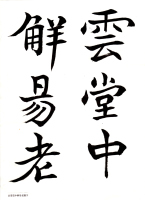 雲堂中
鮮易老